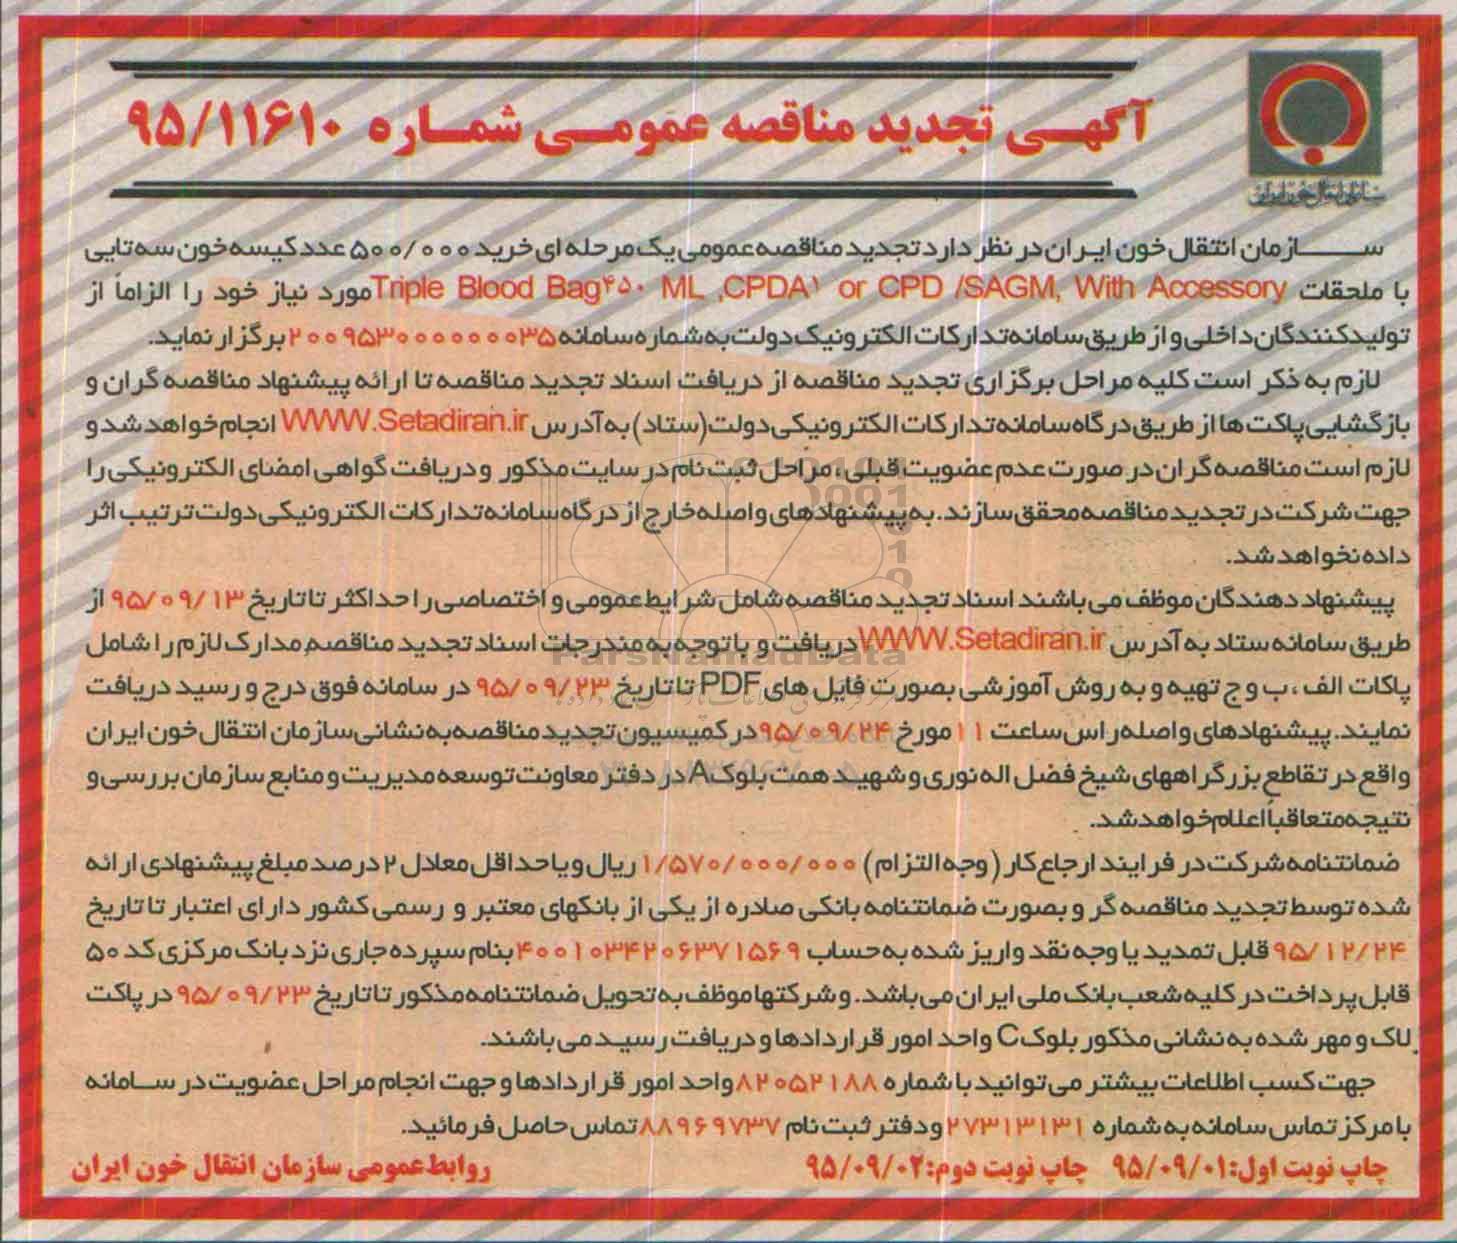 سازمان انتقال خون ایران
آگهی تجدید مناقصه عمومی شماره ۹۵/۱۱۶۱۰
سازمان انتقال خون ایران در نظر دارد تجدید مناقصه عمومی یک مرحله ای خرید ۵۰۰/۰۰۰ عدد کیسه خون سه تایی
با ملحقات Triple Blood Bag۴۵۰ ML ,CPDA۱ or CPD /SAGM, With Accessory مورد نیاز خود را الزاماً از
تولیدکنندگان داخلی و از طریق سامانه تدارکات الکترونیک دولت به شماره سامانه ۲۰۰۹۵۳۰۰۰۰۰۰۰۰۳۵ برگزار نماید.
لازم به ذکر است کلیه مراحل برگزاری تجدید مناقصه از دریافت اسناد تجدید مناقصه تا ارائه پیشنهاد مناقصه گران و
بازگشایی پاکت ها از طریق درگاه سامانه تدارکات الکترونیکی دولت (ستاد) به آدرس WWW.Setadiran.ir انجام خواهد شد و
لازم است مناقصه گران در صورت عدم عضویت قبلی ، مراحل ثبت نام در سایت مذکور و دریافت گواهی امضای الکترونیکی را
جهت شرکت در تجدید مناقصه محقق سازند. به پیشنهادهای واصله خارج از درگاه سامانه تدارکات الکترونیکی دولت ترتیب اثر
داده نخواهد شد.
پیشنهاد دهندگان موظف می باشند اسناد تجدید مناقصه شامل شرایط عمومی و اختصاصی را حداکثر تا تاریخ ۹۵/۰۹/۱۳ از
طریق سامانه ستاد به آدرس WWW.Setadiran.ir دریافت و با توجه به مندرجات اسناد تجدید مناقصه مدارک لازم را شامل
پاکات الف ، ب و ج تهیه و به روش آموزشی بصورت فایل های PDF تا تاریخ ۹۵/۰۹/۲۳ در سامانه فوق درج و رسید دریافت
نمایند. پیشنهادهای واصله راس ساعت ۱۱ مورخ ۹۵/۰۹/۲۴ در کمیسیون تجدید مناقصه به نشانی سازمان انتقال خون ایران
واقع در تقاطع بزرگراههای شیخ فضل اله نوری و شهید همت بلوک A در دفتر معاونت توسعه مدیریت و منابع سازمان بررسی و
نتیجه متعاقباً اعلام خواهد شد.
ضمانتنامه شرکت در فرایند ارجاع کار (وجه التزام) ۱/۵۷۰/۰۰۰/۰۰۰ ریال و یا حداقل معادل ۲ درصد مبلغ پیشنهادی ارائه
شده توسط تجدید مناقصه گر و بصورت ضمانتنامه بانکی صادره از یکی از بانکهای معتبر و رسمی کشور دارای اعتبار تا تاریخ
۹۵/۱۲/۲۴ قابل تمدید یا وجه نقد واریز شده به حساب ۴۰۰۱۰۳۴۲۰۶۳۷۱۵۶۹ بنام سپرده جاری نزد بانک مرکزی کد ۵۰
قابل پرداخت در کلیه شعب بانک ملی ایران می باشد. و شرکتها موظف به تحویل ضمانتنامه مذکور تا تاریخ ۹۵/۰۹/۲۳ در پاکت
لاک و مهر شده به نشانی مذکور بلوک C واحد امور قراردادها و دریافت رسید می باشند.
جهت کسب اطلاعات بیشتر می توانید با شماره ۸۲۰۵۲۱۸۸ واحد امور قراردادها و جهت انجام مراحل عضویت در سامانه
با مرکز تماس سامانه به شماره ۲۷۳۱۳۱۳۱ و دفتر ثبت نام ۸۸۹۶۹۷۳۷ تماس حاصل فرمائید.
چاپ نوبت اول: ۹۵/۰۹/۰۱ چاپ نوبت دوم: ۹۵/۰۹/۰۲
روابط عمومی سازمان انتقال خون ایران
ParsNamadData